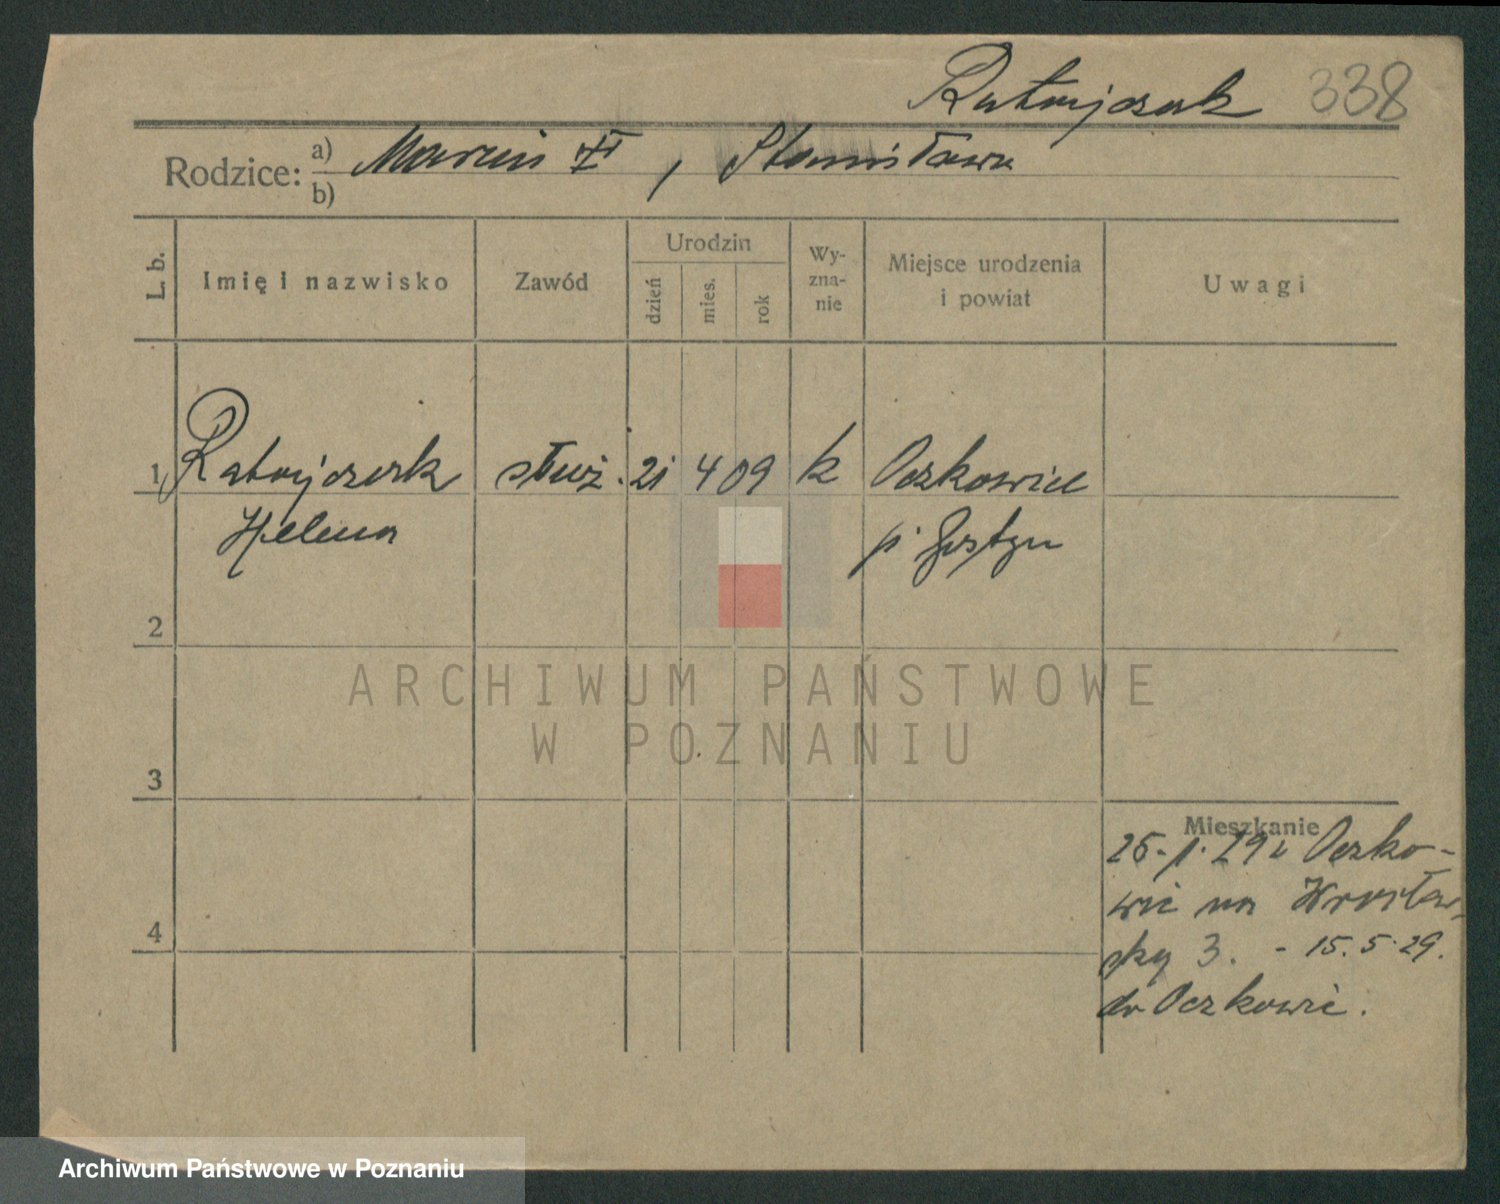 Ratajczak 338
Rodzice: a) b) Marcin , Stanisława
L. b. Imię i nazwisko Zawód Urodzin dzień mies. rok Wy-zna-nie Miejsce urodzenia i powiat Uwagi
1 Ratajczak służ. 21 4 09 k Oczkowice
Helena p. Gostyn
2
ARCHIWUM PAŃSTWOWE
W POZNANIU
3
Mieszkanie
29 z Oczko-
wic na Wrocław-
ską 3. - 15.5.29.
4
do Oczkowic.
Archiwum Państwowe w Poznaniu